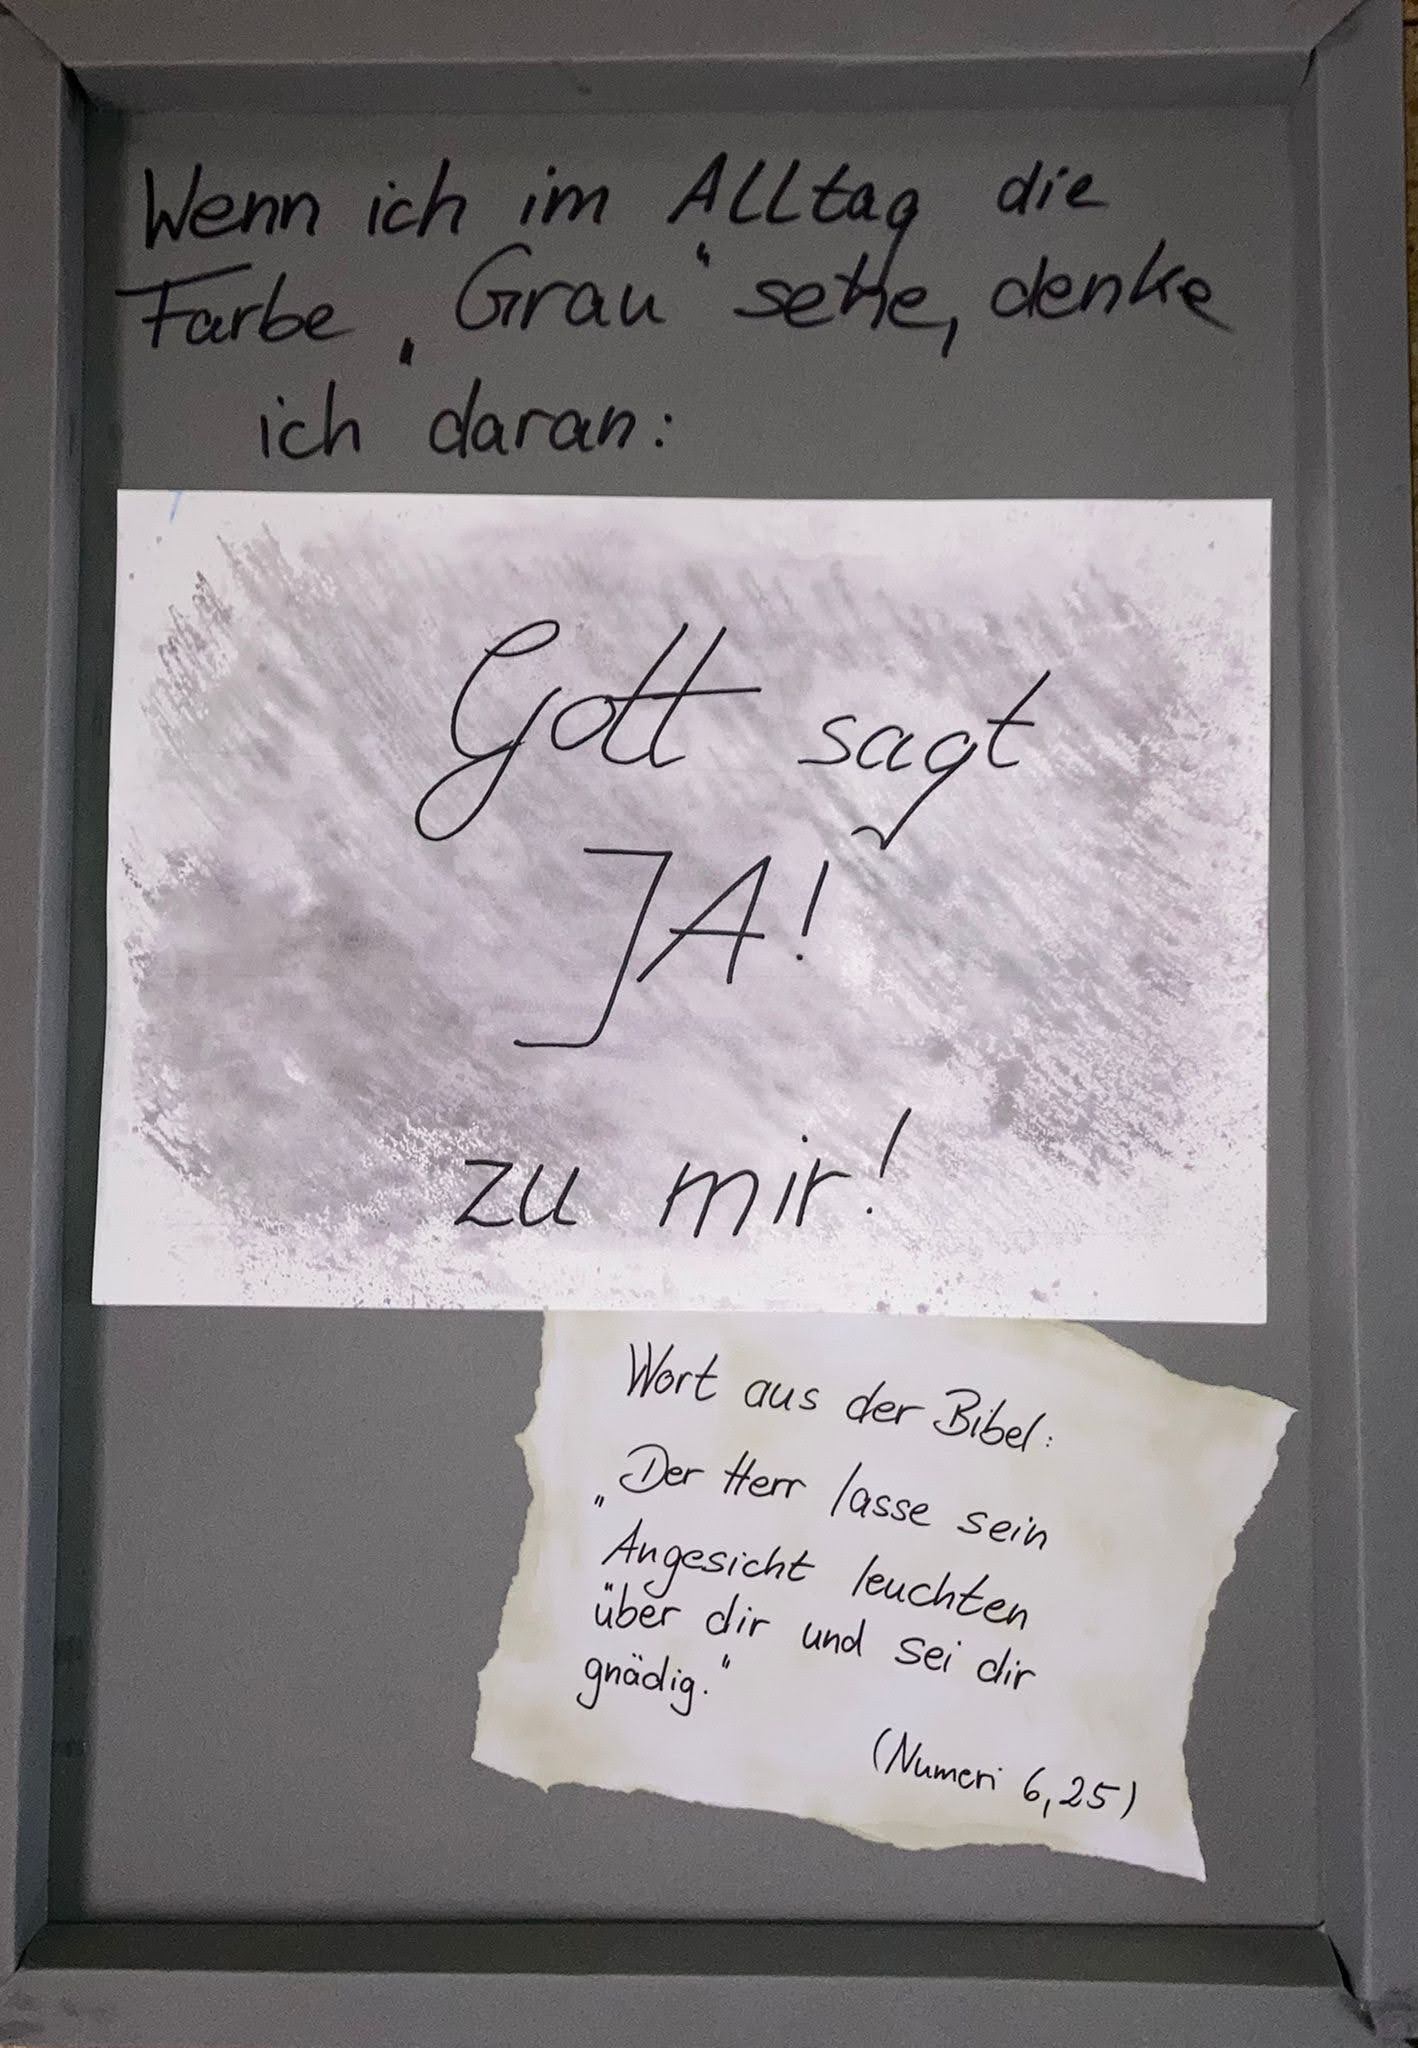 Wenn ich im Alltag die
Farbe „Grau“ sehe, denke
ich daran:
Gott sagt
JA!
zu mir!
Wort aus der Bibel:
„Der Herr lasse sein
Angesicht leuchten
über dir und sei dir
gnädig.“
(Numeri 6,25)